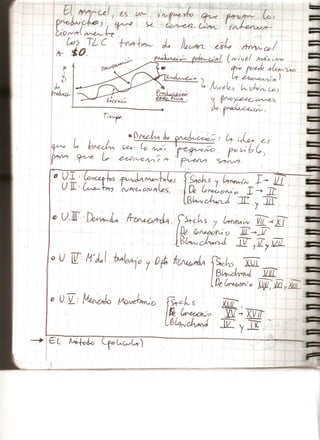 El arancel, es un impuesto que pagan los
productos, que se comercian interna-
cionalmente.
Los TLC tratan de llevar este arancel
a $0.
producción potencial (nivel máximo
que puede alcanzar
la economía)
Tendencia
Niveles históricos
y proyecciones
de producción.
Producción
efectiva
Expansión
Recesión
de
Producc.
Tiempo
• Brecha de producción: La idea es
que la brecha sea lo más pequeño posible,
para que la economía
o U I: Conceptos fundamentales
U II: Cuentas nacionales.
Sachs y Larraín I → II
De Gregorio I → II
Blanchard II y III
o U. III: Demanda Agregada.
Sachs y Larraín VII → XI
De Gregorio III → V
Blanchard IV, V y VII
o U. IV: M° del trabajo y Ofta Agregada
Sachs XVI
Blanchard VIII
De Gregorio
o U. V: Mercado Monetario
Sachs
De Gregorio XV → XVII
Blanchard IV y IX
→ EL Método (película)